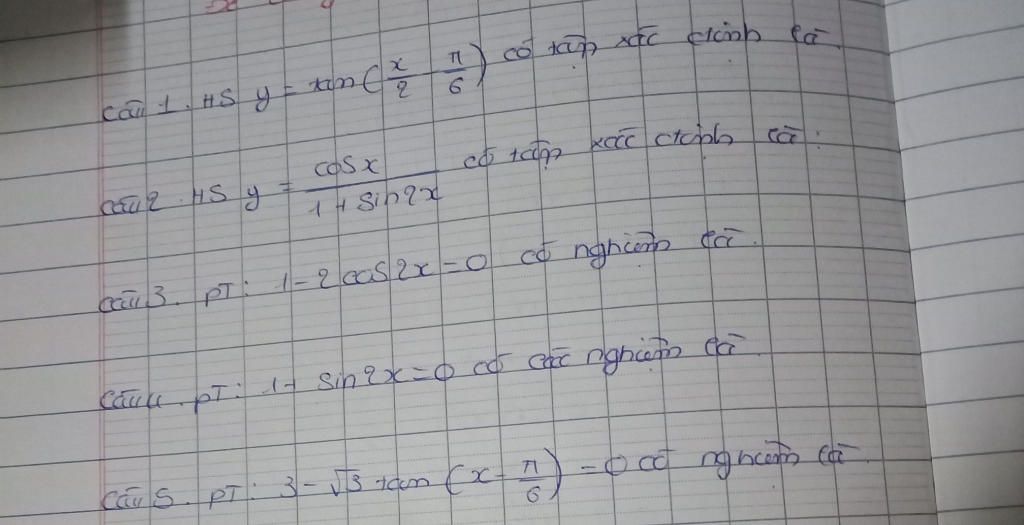 Câu 1. HS y = tan(x/2 - π/6) có tập xác định là
Câu 2. HS y = cosx/(1+sin2x) có tập xác định là:
Câu 3. PT: 1-2cos2x=0 có nghiệm là.
Câu 4. PT: 1- sin2x=0 có các nghiệm là
Câu 5. PT: 3-√3 tan(x-π/6)=0 có nghiệm là